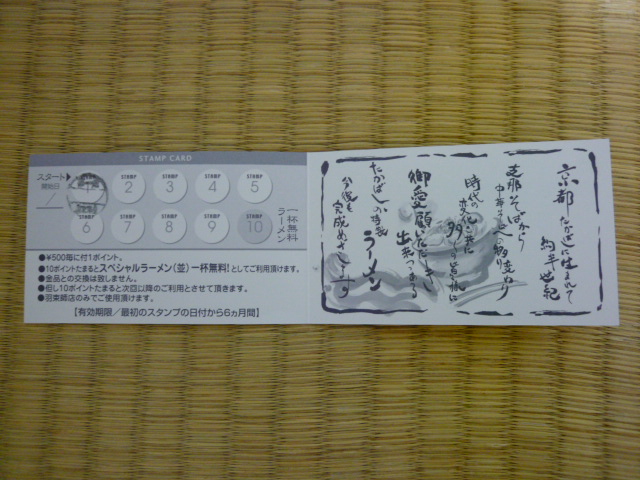 STAMP CARD
スタート
開始日
/
STAMP 2
STAMP 3
STAMP 4
STAMP 5
STAMP 6
STAMP 7
STAMP 8
STAMP 9
STAMP 10
一杯無料
ラーメン
●¥500毎に付1ポイント。
●10ポイントたまるとスペシャルラーメン(並)一杯無料!としてご利用頂けます。
●金品との交換は致しません。
●但し10ポイントたまると次回以降のご利用とさせて頂きます。
●羽束師店のみでご使用頂けます。
【有効期限/最初のスタンプの日付から6ヵ月間】
京都たかばしに生まれて
約半世紀
支那そばから
中華そばへの移り変わり
時代の変化と共に
御愛顧いただき
出来つつある
たかばしの特製
ラーメン
今後も
完成めざします